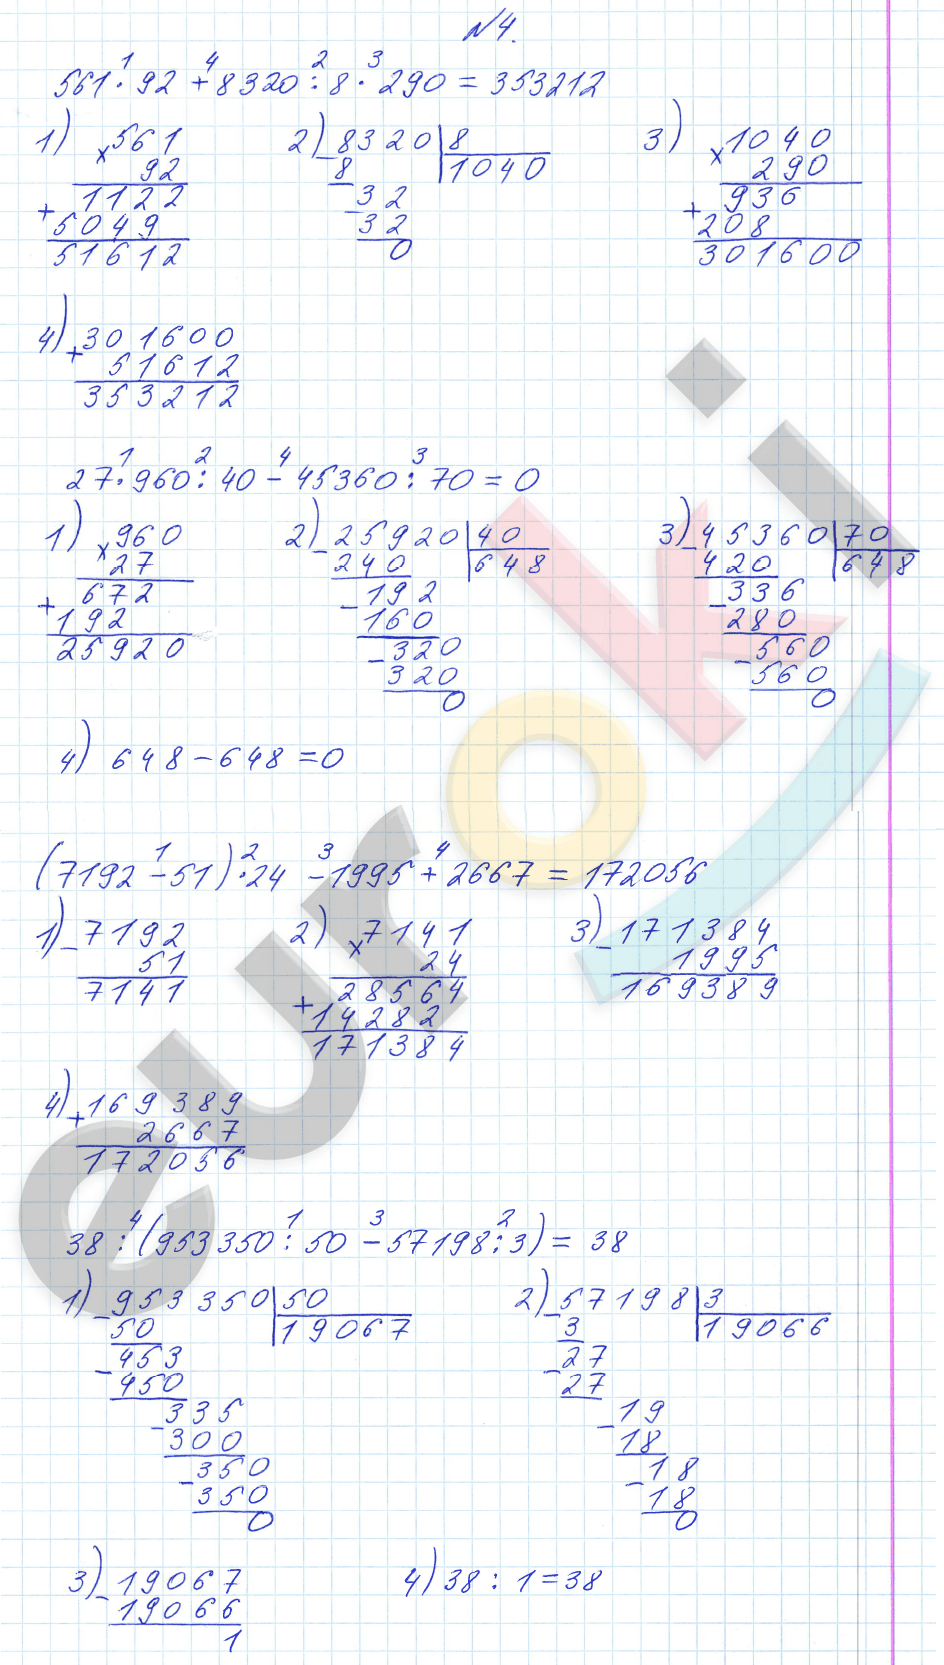 №4.
561 · 92 + 8320 : 8 · 290 = 353212
1 4 2 3
1) × 561
92
+ 1122
5049
51612
2) − 8320 | 8
8 1040
− 32
32
0
3) × 1040
290
+ 936
208
301600
4) + 301600
51612
353212
1 2 4 3
27 · 960 : 40 − 45360 : 70 = 0
1) × 960
27
+ 672
192
25920
2) − 25920 | 40
240 648
− 192
160
− 320
320
0
3) − 45360 | 70
420 648
− 336
280
− 560
560
0
4) 648 − 648 = 0
1 2 3 4
(7192 − 51) · 24 − 1995 + 2667 = 172056
1) − 7192
51
7141
2) × 7141
24
+ 28564
14282
171384
3) − 171384
1995
169389
4) + 169389
2667
172056
4 1 3 2
38 : (953350 : 50 − 57198 : 3) = 38
1) − 953350 | 50
50 19067
− 453
450
− 335
300
− 350
350
0
2) − 57198 | 3
3 19066
− 27
27
− 19
18
− 18
18
0
3) − 19067
19066
1
4) 38 : 1 = 38
euroki